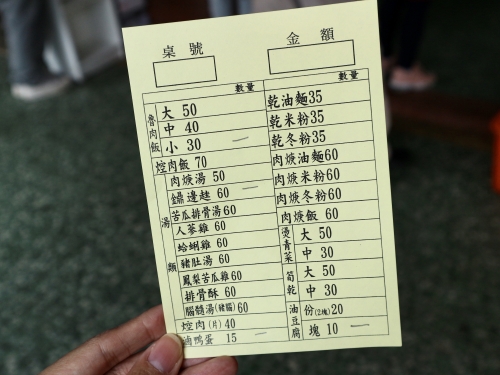 桌號
金額
數量
魯肉飯
大 50
中 40
小 30 一
焢肉飯 70
湯類
肉焿湯 50
鼎邊趖 60 一
苦瓜排骨湯60
人蔘雞 60
蛤蜊雞 60
豬肚湯 60
鳳梨苦瓜雞60
排骨酥 60
腦髓湯(豬腦)60
焢肉(片)40
滷鴨蛋 15 一
數量
乾油麵35
乾米粉35
乾冬粉35
肉焿油麵60
肉焿米粉60
肉焿冬粉60
肉焿飯 60
燙青菜
大 50
中 30
筍乾
大 50
中 30
油豆腐
份(2塊)20
塊 10 一